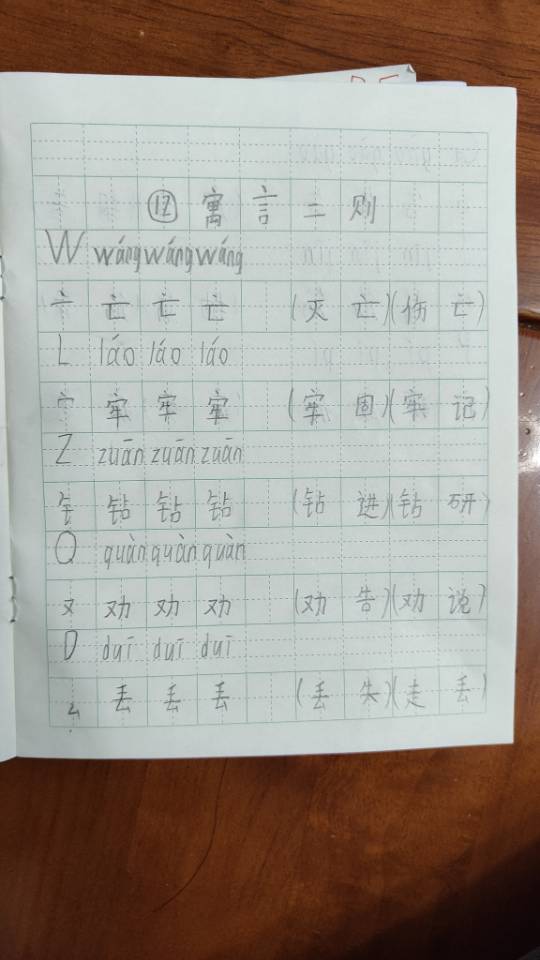 ⑫ 寓言二则
W wáng wáng wáng
亠 亡 亡 亡 (灭亡)(伤亡)
L láo láo láo
宀 牢 牢 牢 (牢固)(牢记)
Z zuān zuān zuān
钅 钻 钻 钻 (钻进)(钻研)
Q quàn quàn quàn
又 劝 劝 劝 (劝告)(劝说)
D duī duī duī
厶 丢 丢 丢 (丢失)(走丢)